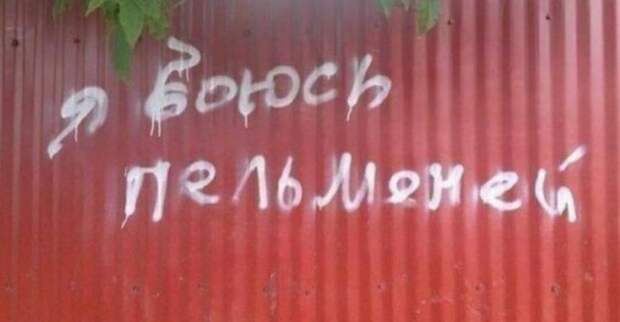 я боюсь
пельменей